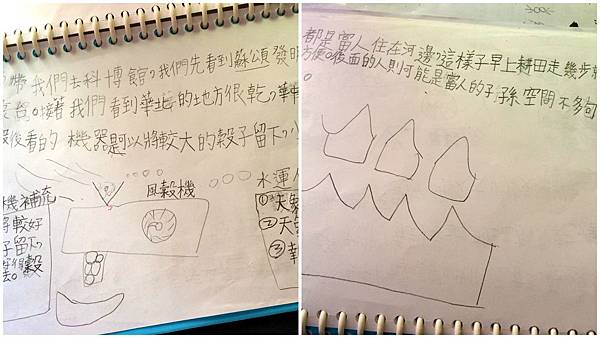 帶我們去科博館,我們先看到蘇頌發明
台。接著我們看到華北的地方很乾,華中
後看的機器是可以將較大的穀子留下,小
水運
風穀機
機補充
將較好
子留下,
穀
①天象
②天
③
都是富人住在河邊,這樣子早上耕田走幾步就
方便。後面的人則可能是富人的子孫空間不多句
。